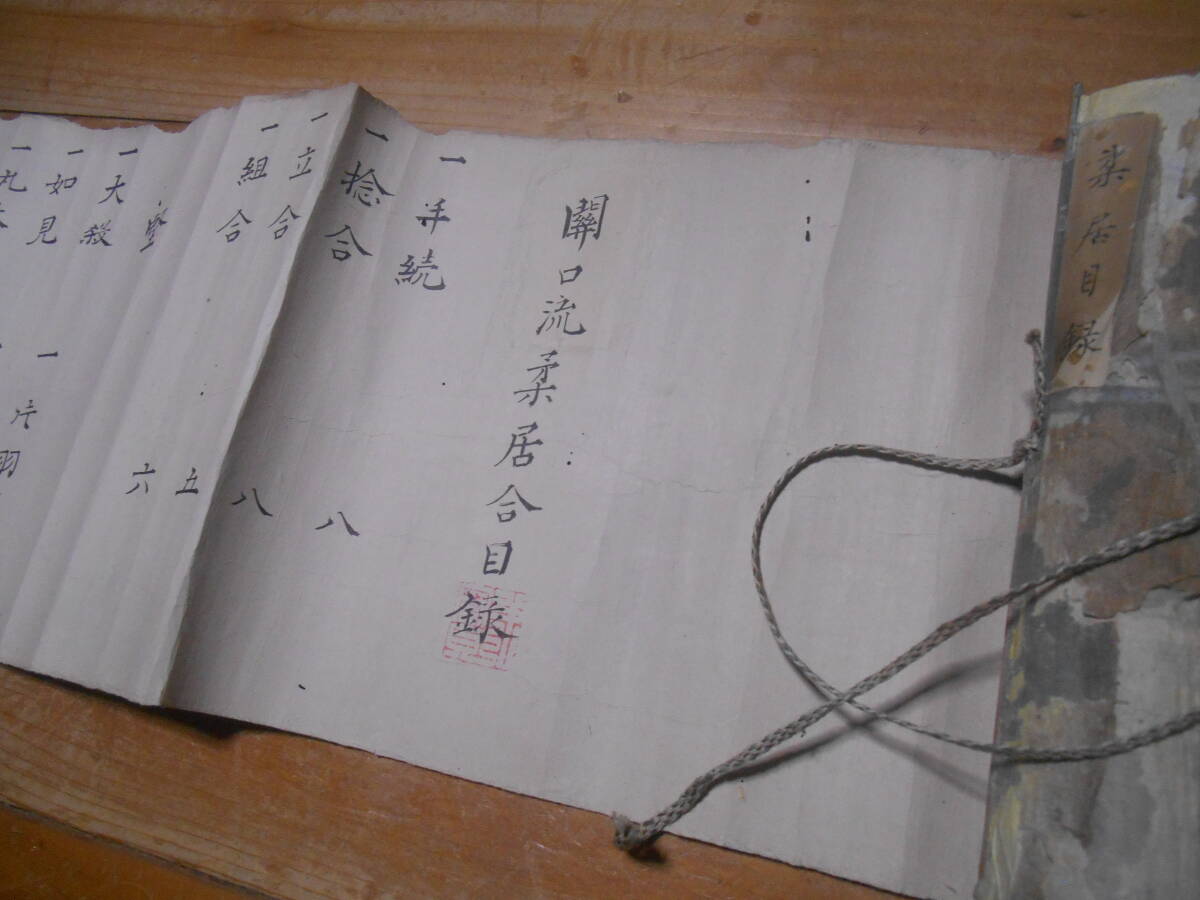 柔居目録
關口流柔居合目録
一手続
一捻合 八
一立合 八
一組合 五
六
一大殺
一如見 一片羽
一丸